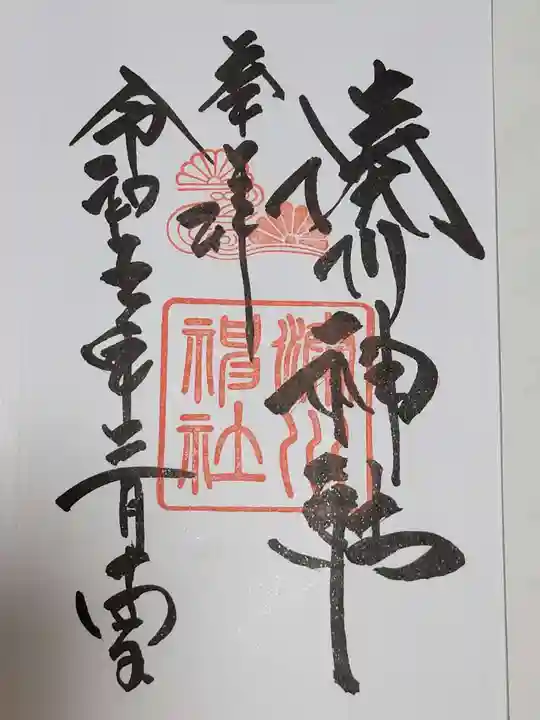 湊川神社
奉拝
令和五年二月十四日
湊川神社